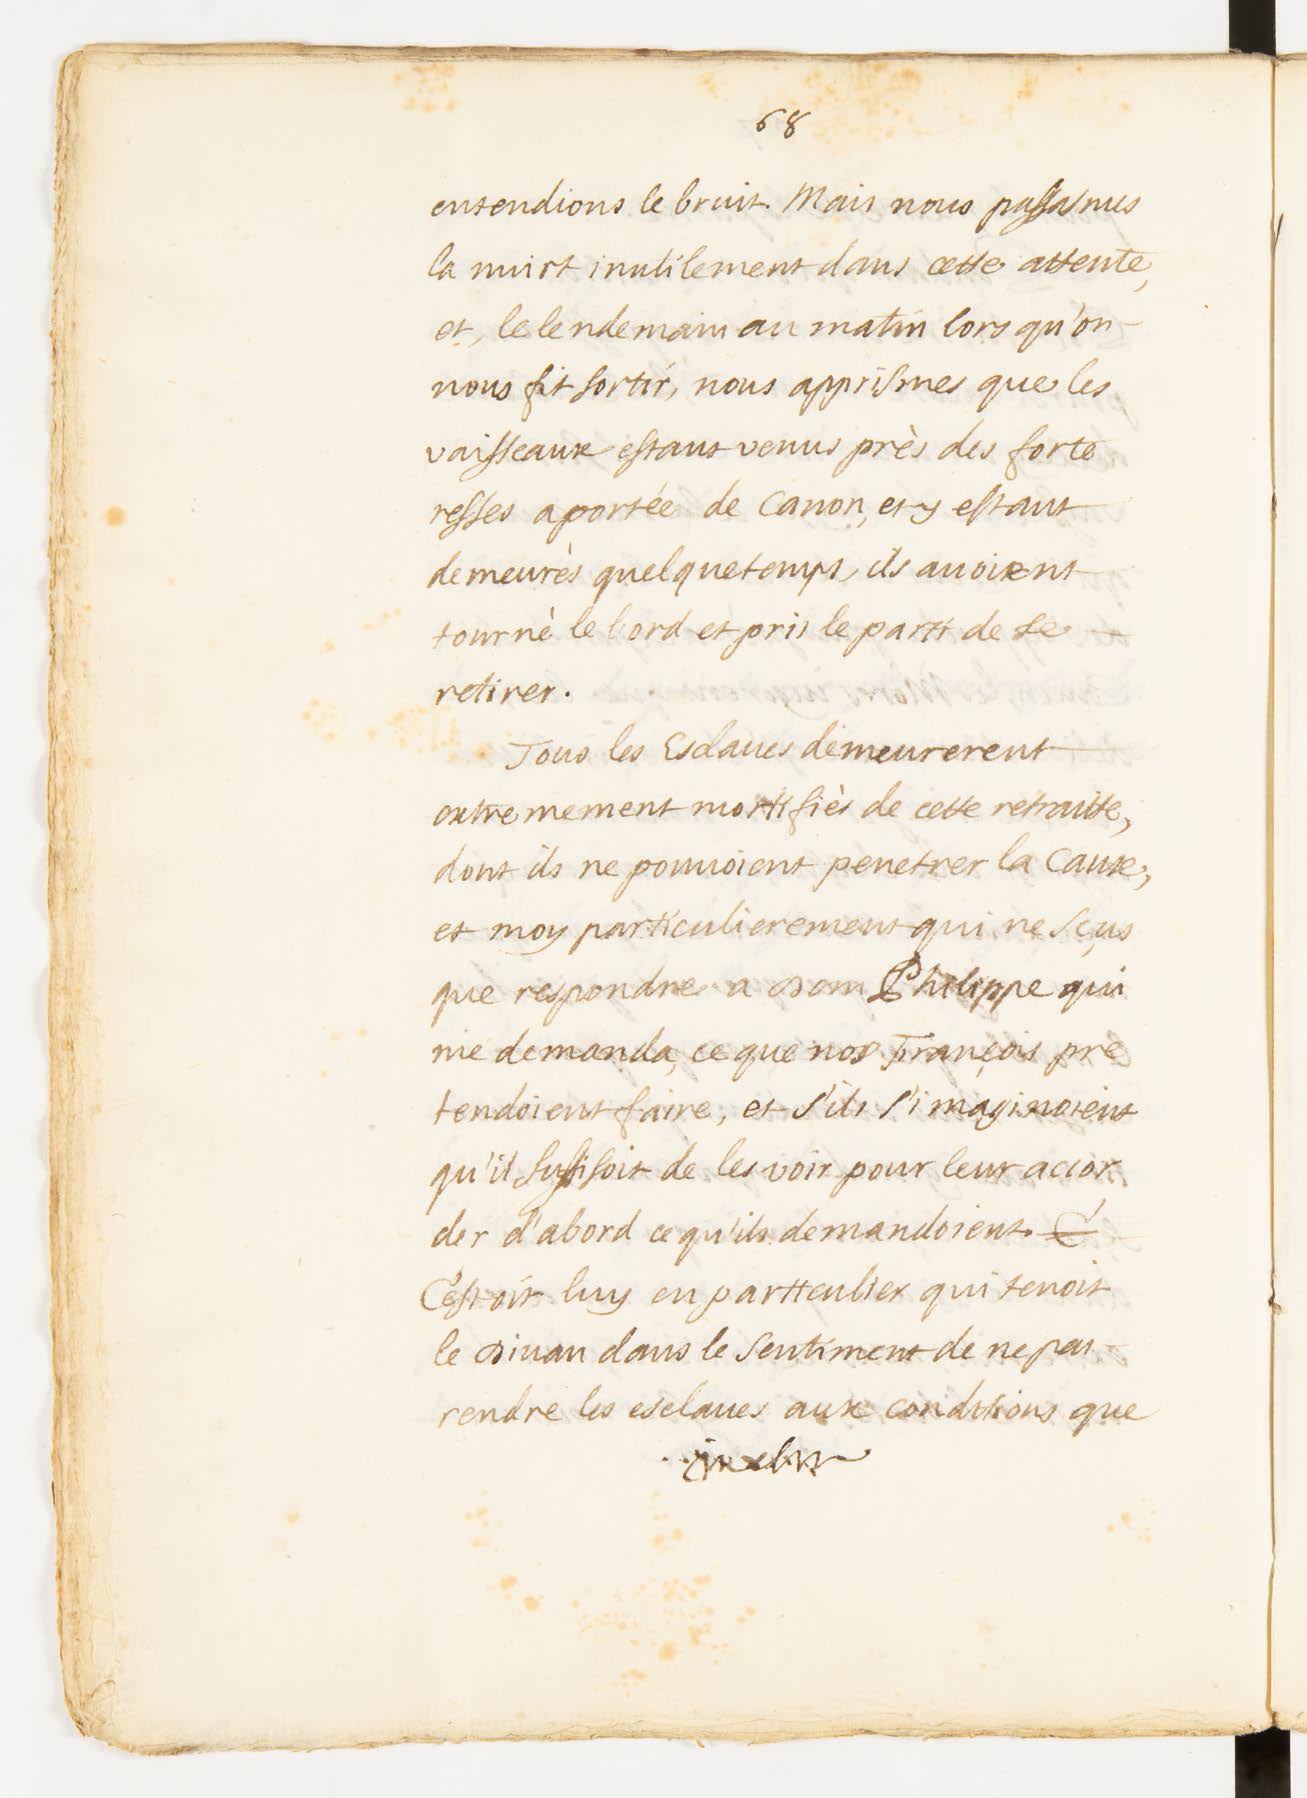 68
entendions le bruit. Mais nous passasmes
la nuict inutilement dans cette attente,
et, le lendemain au matin lors qu'on
nous fit sortir, nous apprismes que les
vaisseaux estant venus près des forte
resses a portée de Canon, et y estant
demeurès quelque temps, ils auoient
tourné le bord et pris le parti de se
retirer.
Tous les Esclaues demeurerent
extremement mortifiès de cette retraitte,
dont ils ne pouuoient penetrer la Cause,
et moy particulierement qui ne sçus
que respondre a Dom Philippe qui
me demanda, ce que nos François pre
tendoient faire, et s'ils s'imaginoient
qu'il suffisoit de les voir pour leur accor
der d'abord ce qu'ils demandoient.
C'estoit luy en particulier qui tenoit
le Diuan dans le sentiment de ne pas
rendre les esclaues aux conditions que